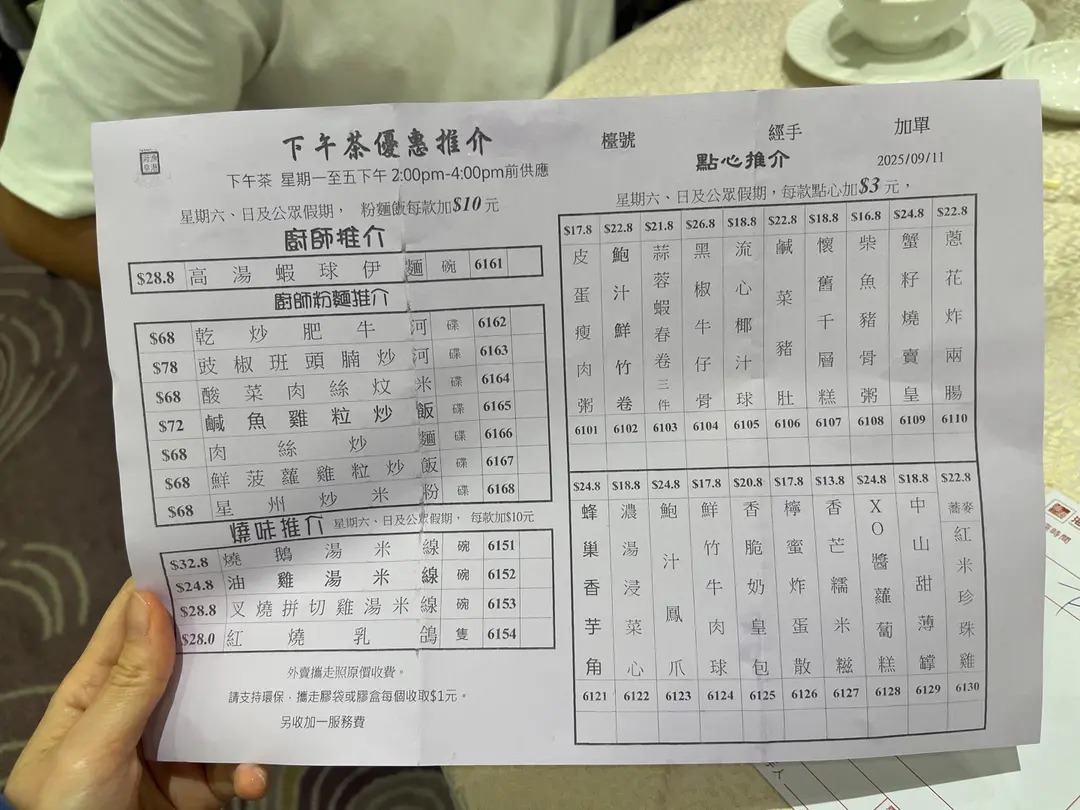 下午茶優惠推介
下午茶 星期一至五下午 2:00pm-4:00pm前供應
星期六、日及公眾假期， 粉麵飯每款加$10 元
廚師推介
$28.8 高湯蝦球伊麵 碗 6161
廚師粉麵推介
$68 乾炒肥牛河 碟 6162
$78 豉椒班頭腩炒河 碟 6163
$68 酸菜肉絲炆米 碟 6164
$72 鹹魚雞粒炒飯 碟 6165
$68 肉絲炒麵 碟 6166
$68 鮮菠蘿雞粒炒飯 碟 6167
$68 星州炒米粉 碟 6168
燒味推介 星期六、日及公眾假期， 每款加$10元
$32.8 燒鵝湯米線 碗 6151
$24.8 油雞湯米線 碗 6152
$28.8 叉燒拼切雞湯米線 碗 6153
$28.0 紅燒乳鴿 隻 6154
外賣攜走照原價收費。
請支持環保，攜走膠袋或膠盒每個收取$1元。
另收加一服務費
檯號 經手 加單
點心推介 2025/09/11
星期六、日及公眾假期，每款點心加$3 元，
$17.8 皮蛋瘦肉粥 6101
$22.8 鮑汁鮮竹卷 6102
$21.8 蒜蓉蝦春卷三件 6103
$26.8 黑椒牛仔骨 6104
$18.8 流心椰汁球 6105
$22.8 鹹菜豬肚 6106
$18.8 懷舊千層糕 6107
$16.8 柴魚豬骨粥 6108
$24.8 蟹籽燒賣皇 6109
$22.8 蔥花炸兩腸 6110
$24.8 蜂巢香芋角 6121
$18.8 濃湯浸菜心 6122
$24.8 鮑汁鳳爪 6123
$17.8 鮮竹牛肉球 6124
$20.8 香脆奶皇包 6125
$17.8 檸蜜炸蛋散 6126
$13.8 香芒糯米糍 6127
$24.8 XO醬蘿蔔糕 6128
$18.8 中山甜薄罉 6129
$22.8 蕎麥紅米珍珠雞 6130